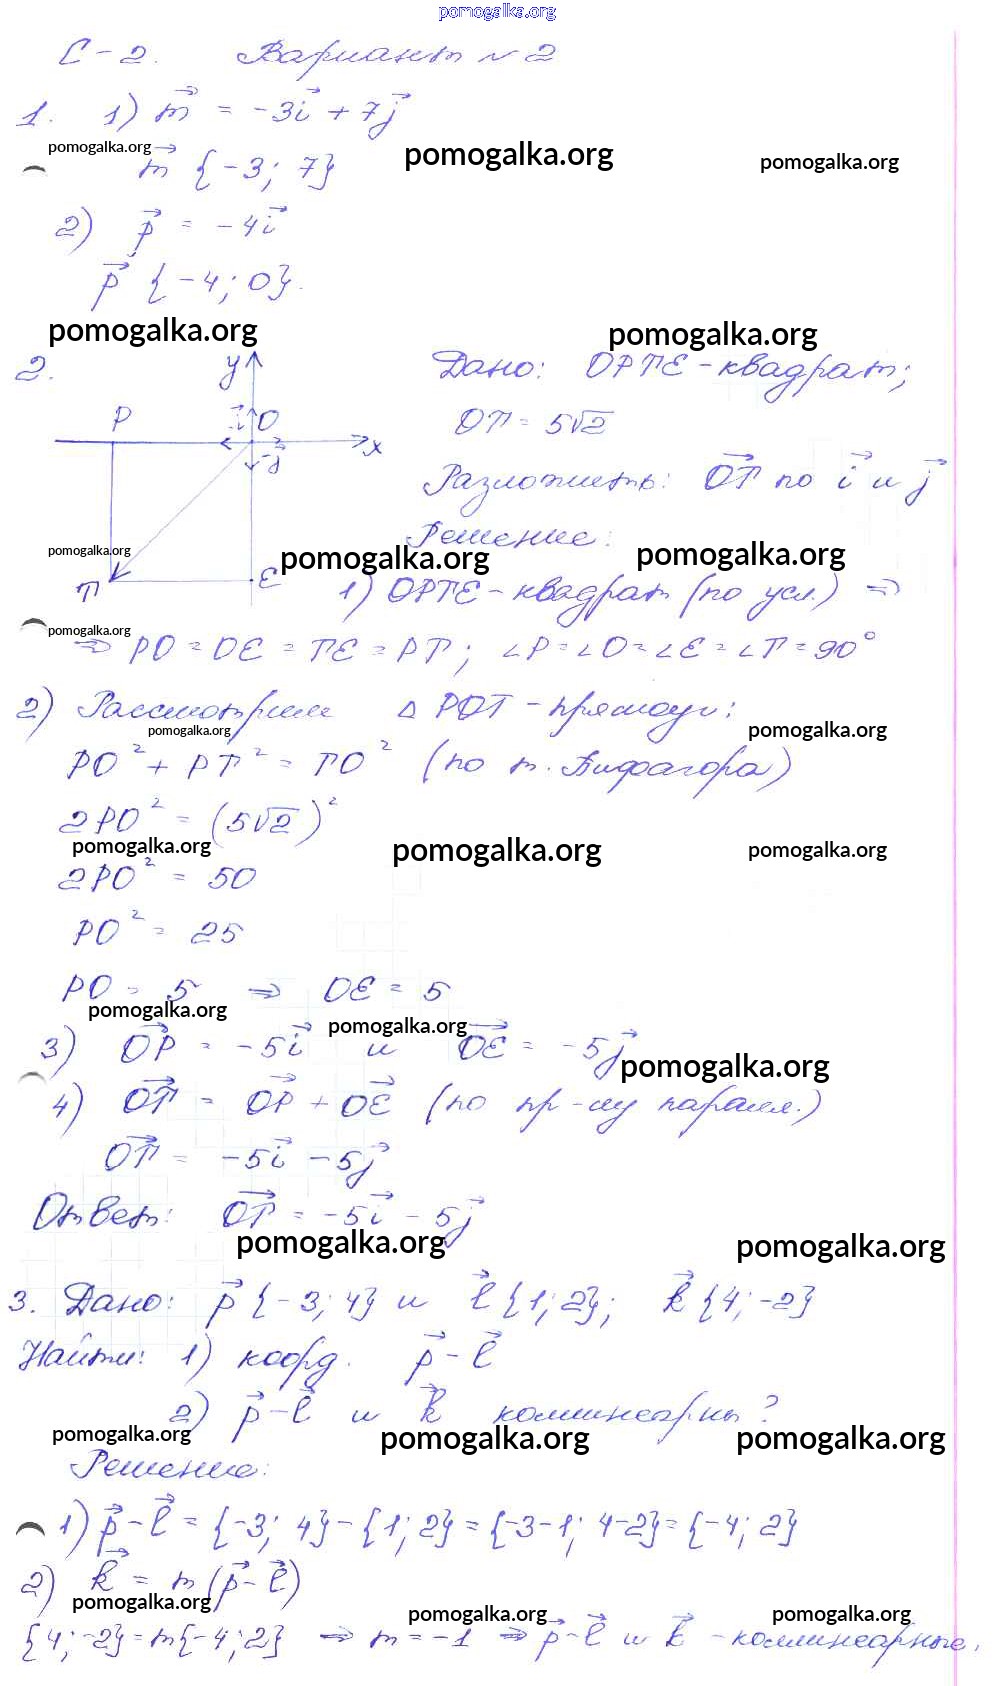 pomogalka.org
С-2. Вариант №2
1. 1) m⃗ = -3i⃗ + 7j⃗
pomogalka.org pomogalka.org pomogalka.org
m⃗ {-3; 7}
2) p⃗ = -4i⃗
p⃗ {-4; 0}.
pomogalka.org pomogalka.org
2. y Дано: ОРТЕ - квадрат;
P O x
ОТ = 5√2
Разложить: ОТ⃗ по i⃗ и j⃗
Решение:
pomogalka.org pomogalka.org pomogalka.org
T E 1) ОРТЕ - квадрат (по усл.) ⇒
pomogalka.org
⇒ РО = ОЕ = ТЕ = РТ; ∠Р = ∠О = ∠Е = ∠Т = 90°
2) Рассмотрим Δ РОТ - прямоуг:
pomogalka.org pomogalka.org
РО² + РТ² = ТО² (по т. Пифагора)
2РО² = (5√2)²
pomogalka.org pomogalka.org pomogalka.org
2РО² = 50
РО² = 25
РО = 5 ⇒ ОЕ = 5
pomogalka.org pomogalka.org
3) ОР⃗ = -5i⃗ и ОЕ⃗ = -5j⃗
pomogalka.org
4) ОТ⃗ = ОР⃗ + ОЕ⃗ (по пр-лу паралл.)
ОТ⃗ = -5i⃗ - 5j⃗
Ответ: ОТ⃗ = -5i⃗ - 5j⃗
pomogalka.org pomogalka.org
3. Дано: p⃗ {-3; 4} и l⃗ {1; 2}; k⃗ {4; -2}
Найти: 1) коорд. p⃗ - l⃗
2) p⃗ - l⃗ и k⃗ коллинеарны?
pomogalka.org pomogalka.org pomogalka.org
Решение:
1) p⃗ - l⃗ = {-3; 4} - {1; 2} = {-3-1; 4-2} = {-4; 2}
2) k⃗ = m(p⃗ - l⃗)
pomogalka.org pomogalka.org pomogalka.org
{4; -2} = m{-4; 2} ⇒ m = -1 ⇒ p⃗ - l⃗ и k⃗ - коллинеарные.